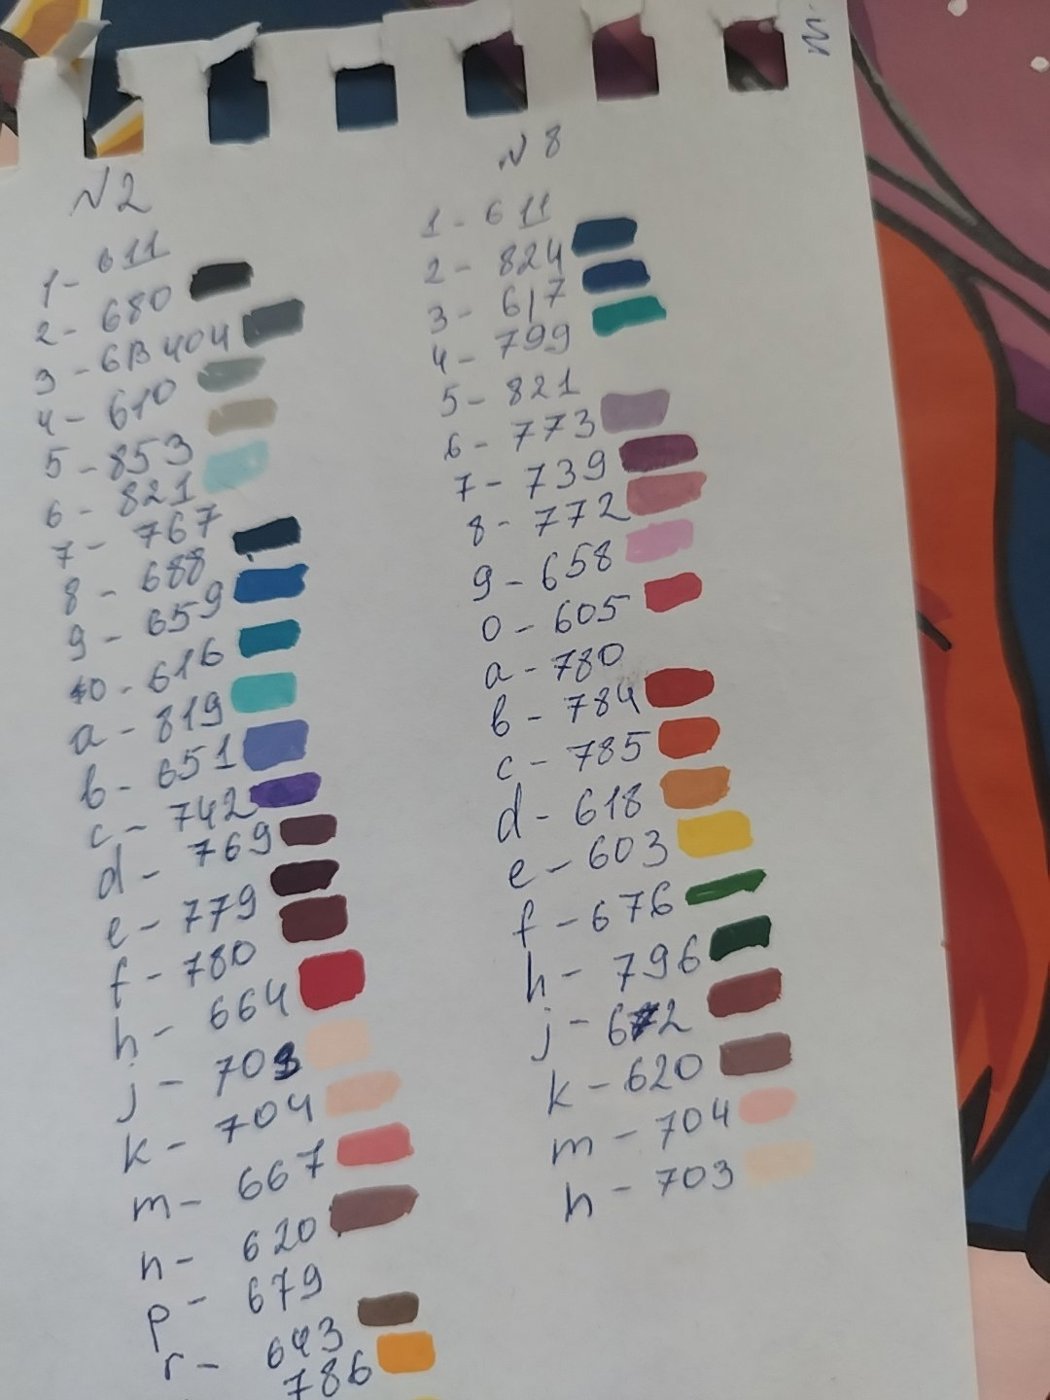 N2
1 - 611
2 - 680
3 - 6B404
4 - 610
5 - 853
6 - 821
7 - 767
8 - 688
9 - 659
10 - 616
a - 819
b - 651
c - 742
d - 769
e - 779
f - 780
h - 664
j - 703
k - 704
m - 667
n - 620
p - 679
r - 643
786
N8
1 - 611
2 - 824
3 - 617
4 - 799
5 - 821
6 - 773
7 - 739
8 - 772
9 - 658
0 - 605
a - 780
b - 784
c - 785
d - 618
e - 603
f - 676
h - 796
j - 672
k - 620
m - 704
n - 703